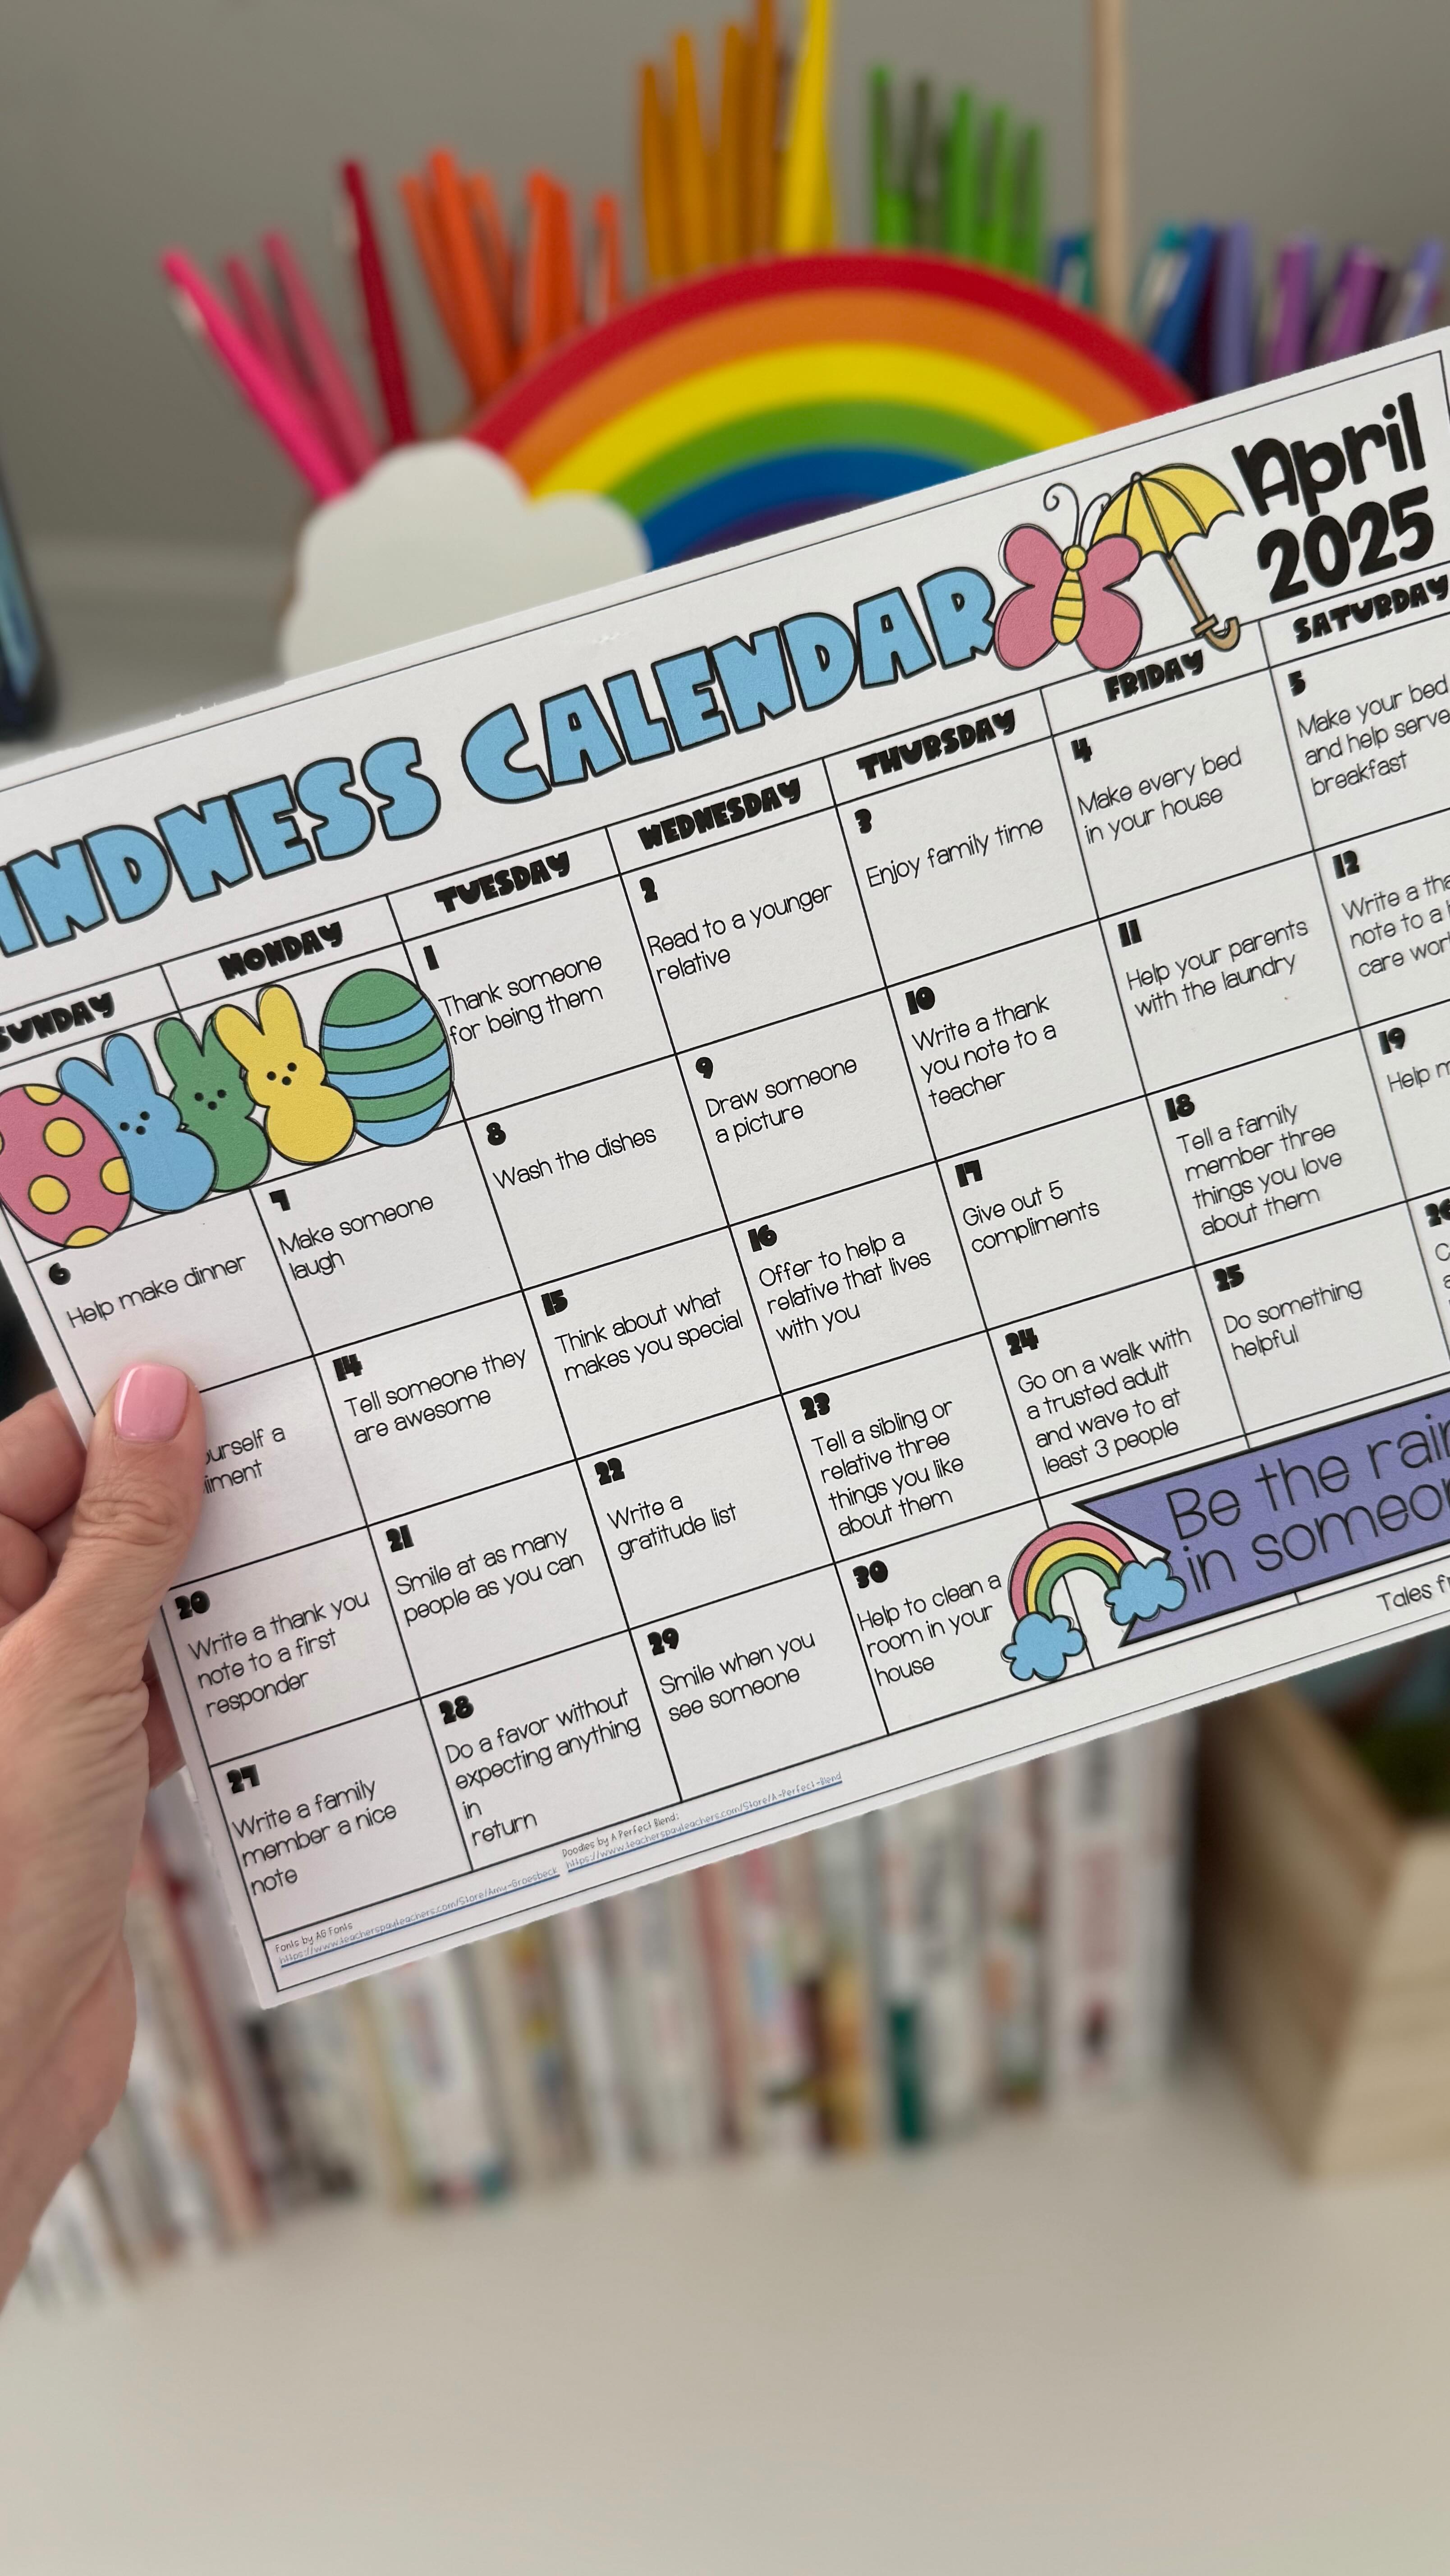 INDNESS CALENDAR
April
2025
SUNDAY
MONDAY
TUESDAY
WEDNESDAY
THURSDAY
FRIDAY
SATURDAY
1
Thank someone
for being them
2
Read to a younger
relative
3
Enjoy family time
4
Make every bed
in your house
5
Make your bed
and help serve
breakfast
6
Help make dinner
7
Make someone
laugh
8
Wash the dishes
9
Draw someone
a picture
10
Write a thank
you note to a
teacher
11
Help your parents
with the laundry
12
Write a
note to a
care
14
Tell someone they
are awesome
15
Think about what
makes you special
16
Offer to help a
relative that lives
with you
17
Give out 5
compliments
18
Tell a family
member three
things you love
about them
19
Help
20
Write a thank you
note to a first
responder
21
Smile at as many
people as you can
22
Write a
gratitude list
23
Tell a sibling or
relative three
things you like
about them
24
Go on a walk with
a trusted adult
and wave to at
least 3 people
25
Do something
helpful
27
Write a family
member a nice
note
28
Do a favor without
expecting anything
in
return
29
Smile when you
see someone
30
Help to clean a
room in your
house
Be the
in
Tales
Fonts by AG Fonts
https://www.teacherspayteachers.com/Store/Amy-Groesbeck
Doodles by A Perfect Blend:
https://www.teacherspayteachers.com/Store/A-Perfect-Blend